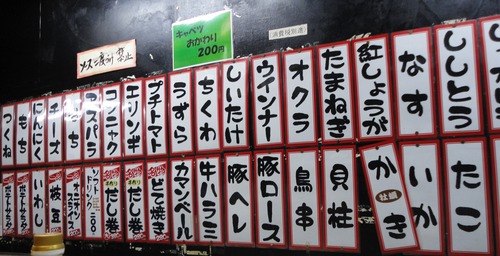 キャベツ
おかわり
200円
消費税別途
ソース二度漬け禁止
ししとう
なす
紅しょうが
たまねぎ
オクラ
ウインナー
しいたけ
ちくわ
うずら
プチトマト
エリンギ
コンニャク
アスパラ
チーズ
にんにく
もち
つくね
たこ
いか
かき
牡蠣
貝柱
鳥串
豚ロース
豚ヘレ
牛ハラミ
カマンベール
どて焼き
だし巻
だし巻
枝豆
いわし
ポテトサラダ
ポテトサラダ